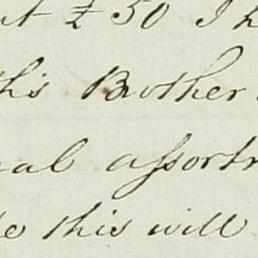 ut £50 I h
this Brother
al assort
o this will